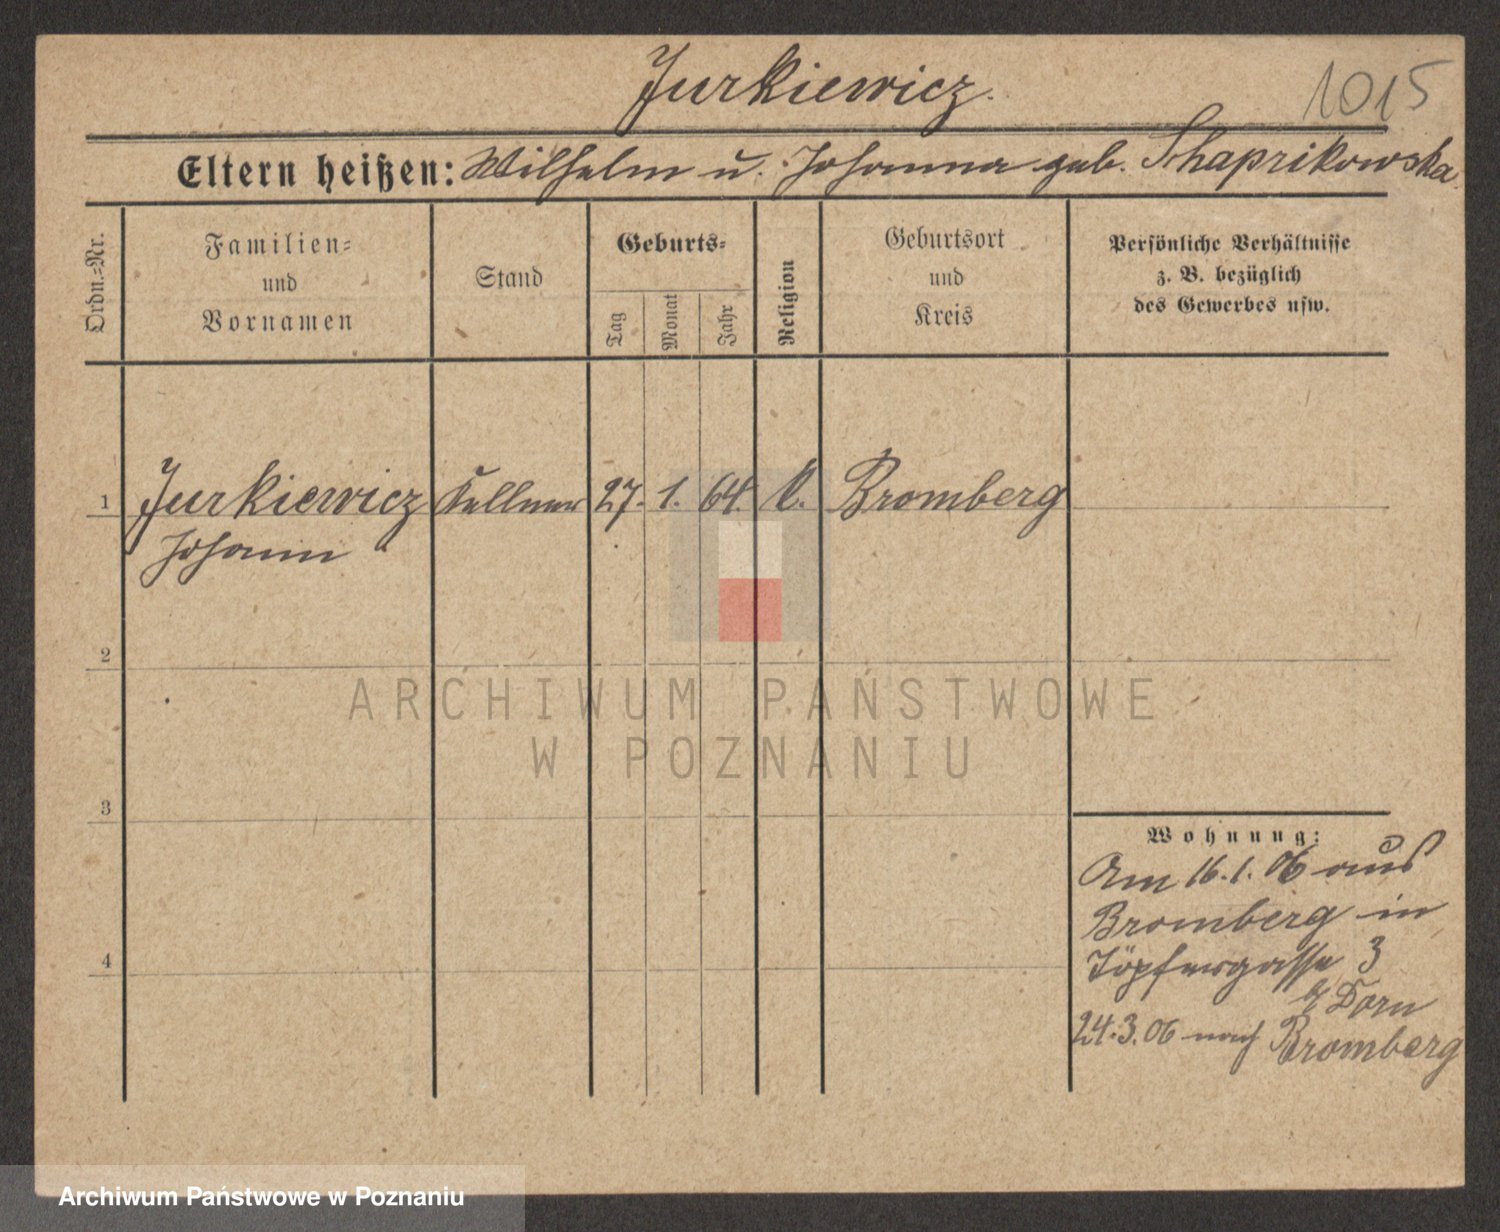 Jurkiewicz.
1015
Eltern heißen: Wilhelm u. Johanna geb.
Ordn.=Nr.
Familien=
und
Vornamen
Stand
Geburts=
Tag
Monat
Jahr
Religion
Geburtsort
und
Kreis
Persönliche Verhältnisse
z. B. bezüglich
des Gewerbes usw.
1 Jurkiewicz Kellner 27. 1. 64. k. Bromberg
Johann
2
ARCHIWUM PAŃSTWOWE
W POZNANIU
3
Wohnung:
Am 16.1.06 aus
Bromberg in
Töpfergasse 3
b/ Dorn
24.3.06 nach Bromberg
4
Archiwum Państwowe w Poznaniu